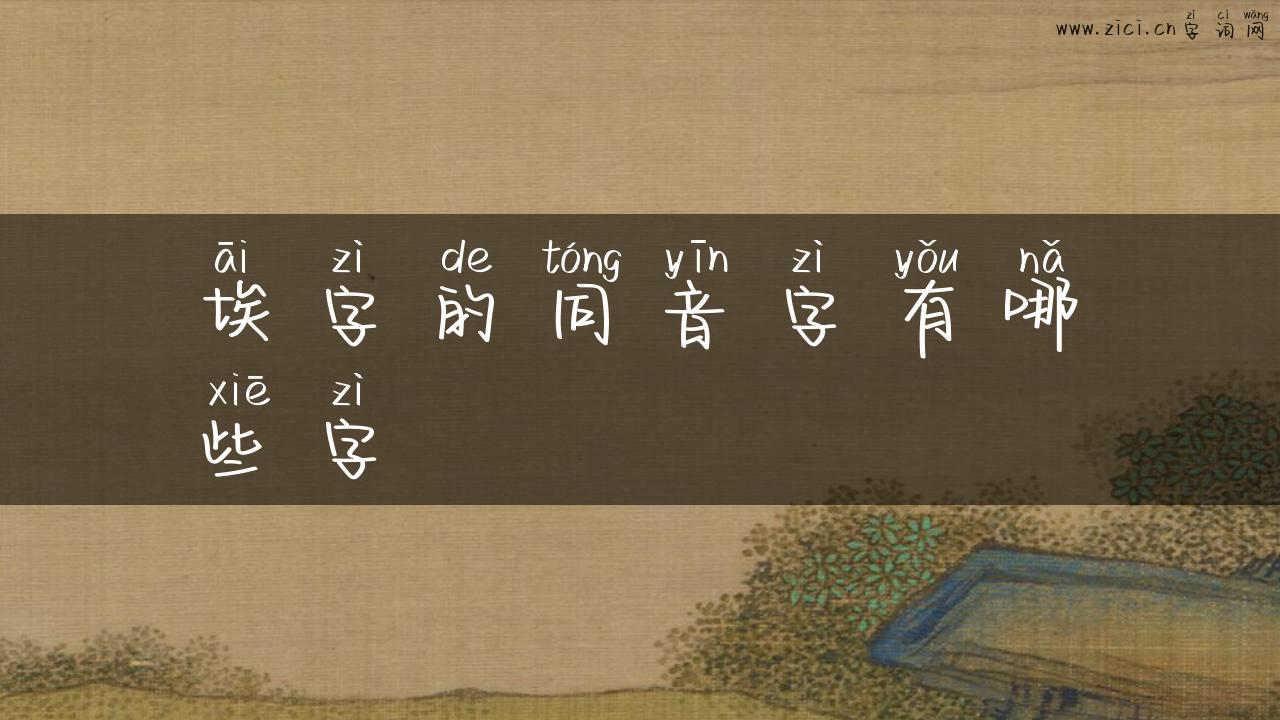 zì cí wǎng
www.zici.cn 字 词 网
āi zì de tóng yīn zì yǒu nǎ
埃 字 的 同 音 字 有 哪
xiē zì
些 字